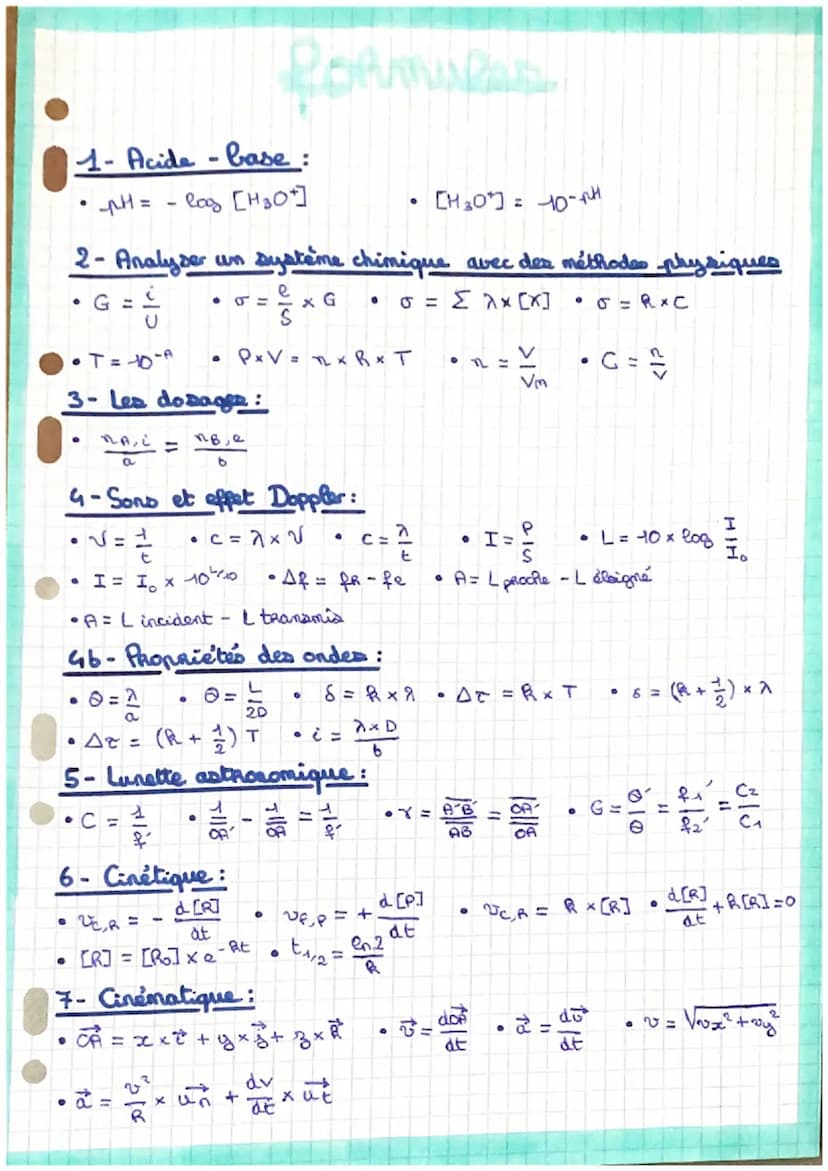 formules
1- Acide - base :
• pH = - log [H3O+] • [H3O+] = 10^-pH
2- Analyser un système chimique avec des méthodes physiques
• G = i/U • σ = l/S × G • σ = Σ λ×[X] • σ = k×C
• T = 10^-A • P×V = n×R×T • n = V/Vm • C = n/V
3- Les dosages :
• nA,i/a = nB,e/b
4- Sons et effet Doppler :
• ν = 1/t • c = λ×ν • c = λ/t • I = P/S • L = 10 × log I/I0
• I = I0 × 10^L/10 • Δf = fR - fe • A = L proche - L éloigné
• A = L incident - L transmis
4b- Propriétés des ondes :
• θ = λ/a • θ = L/2D • δ = k×λ • Δτ = k×T • δ = (k + 1/2) × λ
• Δτ = (k + 1/2) T • i = λ×D/b
5- Lunette astronomique :
• C = 1/f' • 1/OA' - 1/OA = 1/f' • γ = A'B'/AB = OA'/OA • G = θ'/θ = f1'/f2' = C2/C1
6- Cinétique :
• vC,R = - d[R]/dt • vf,P = + d[P]/dt • vC,R = k×[R] • d[R]/dt + k[R] = 0
• [R] = [R0] × e^-kt • t1/2 = ln2/k
7- Cinématique :
• OA→ = x×i→ + y×j→ + z×k→ • v→ = dOA→/dt • a→ = dv→/dt • v = √(vx² + vy²)
• a→ = v²/R × un→ + dv/dt × ut→